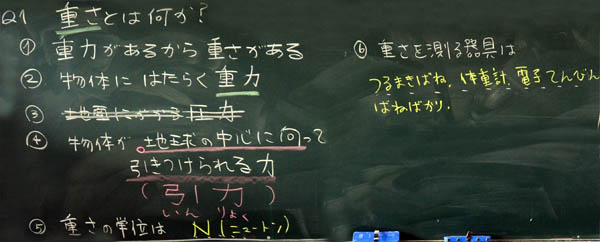 Q1 重さとは何か?
① 重力があるから重さがある
② 物体にはたらく重力
③ 地面にかかる圧力
④ 物体が地球の中心に向って
引きつけられる力
(引力)
いんりょく
⑤ 重さの単位は N(ニュートン)
⑥ 重さを測る器具は
つるまきばね, 体重計, 電子てんびん
ばねばかり.